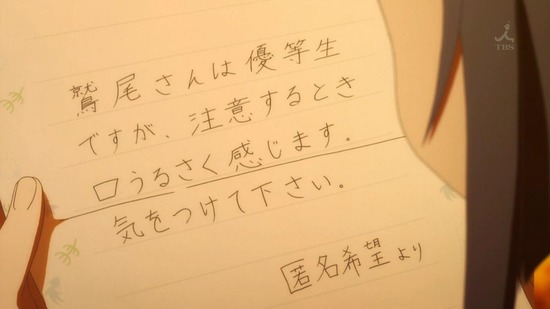 TBS
鷲尾さんは優等生
ですが、注意するとき
口うるさく感じます。
気をつけて下さい。
匿名希望より